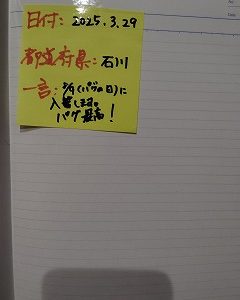 日付: 2025.3.29
都道府県: 石川
一言: 8/9(パグの日)に
入籍します。
パグ最高!